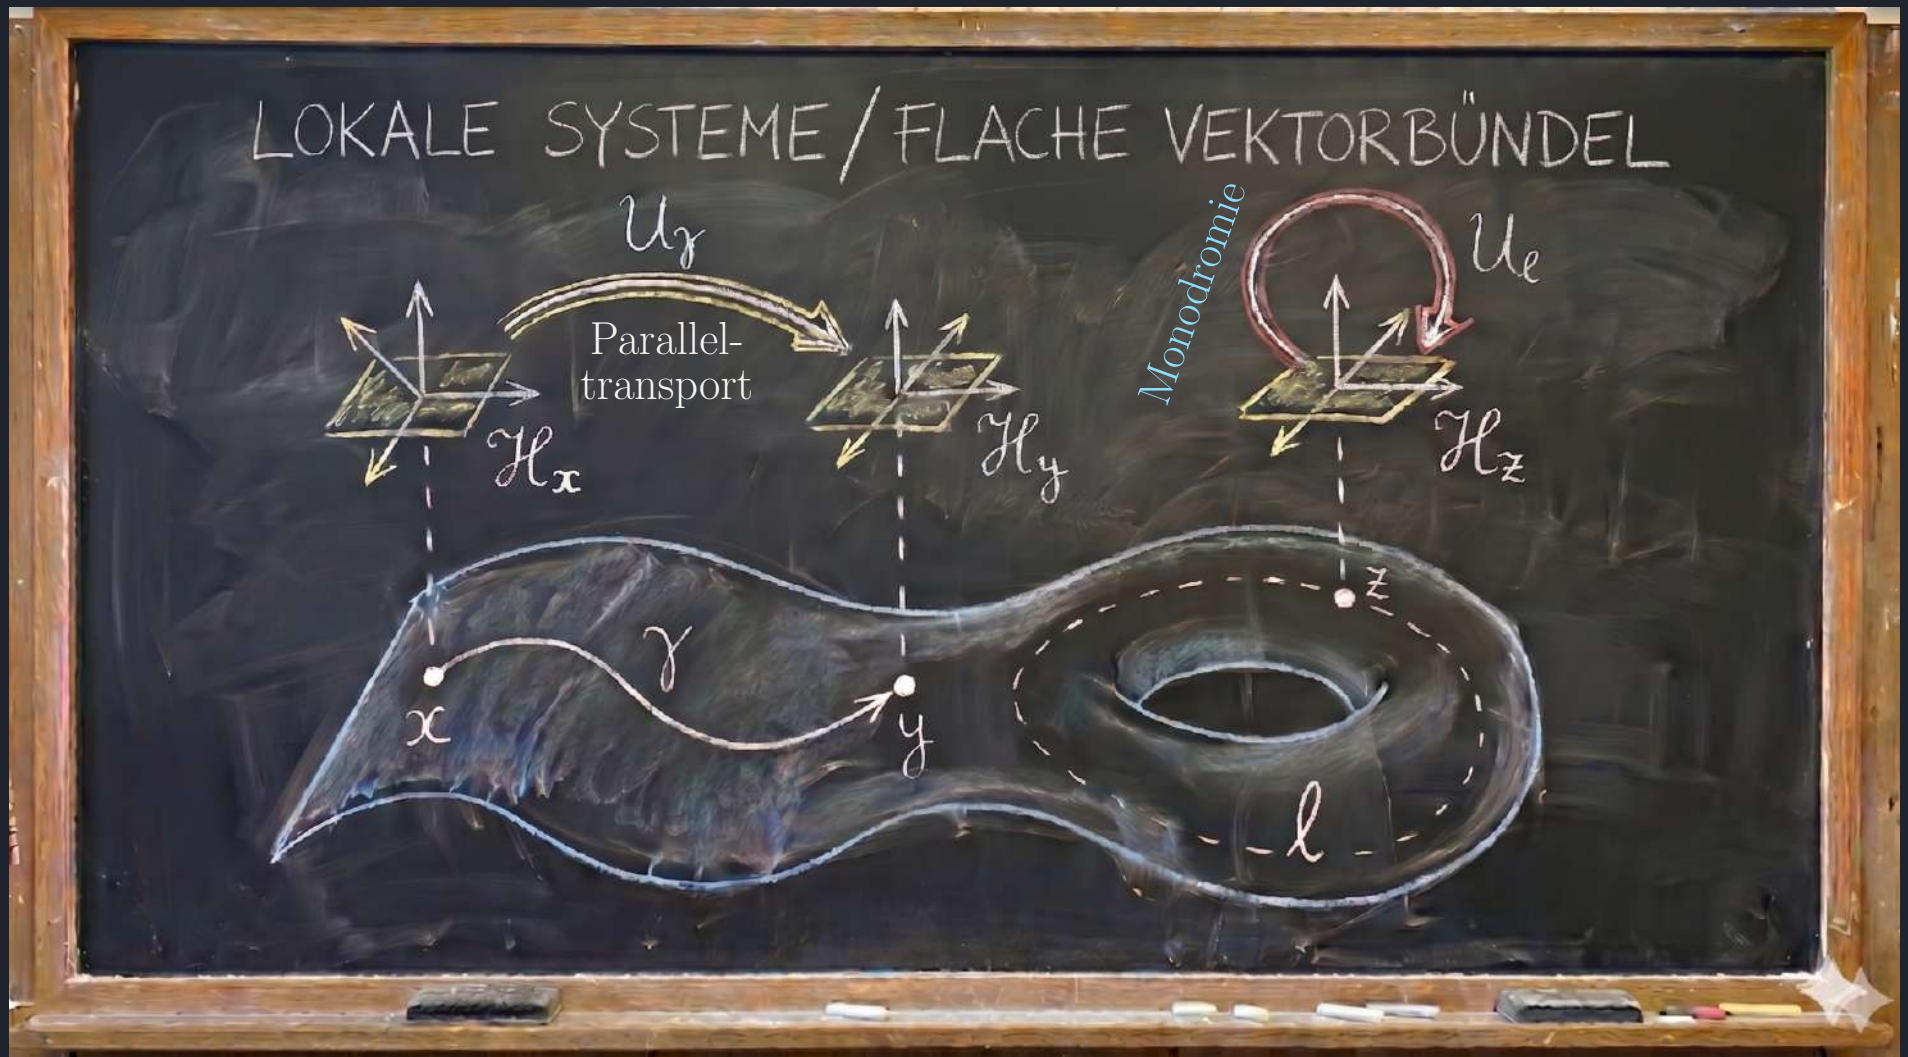 LOKALE SYSTEME/FLACHE VEKTORBÜNDEL
U_γ
Parallel-
transport
Monodromie
U_ℓ
ℋ_x
ℋ_y
ℋ_z
z
γ
x
y
ℓ